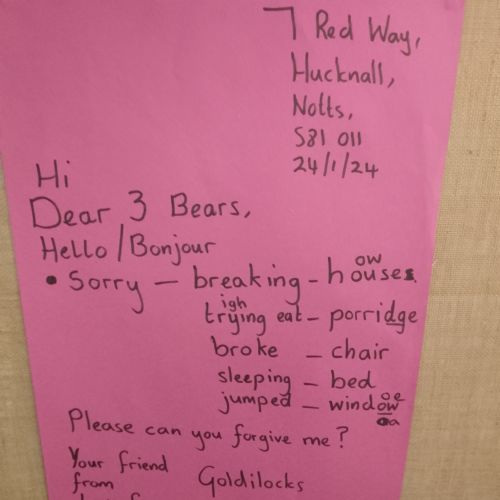 7 Red Way,
Hucknall,
Notts,
S81 011
24/1/24
Hi
Dear 3 Bears,
Hello/Bonjour
ow
• Sorry – breaking – houses.
igh
trying eat – porridge
broke – chair
sleeping – bed
oe
jumped – window
Please can you forgive me?
Your friend
from Goldilocks